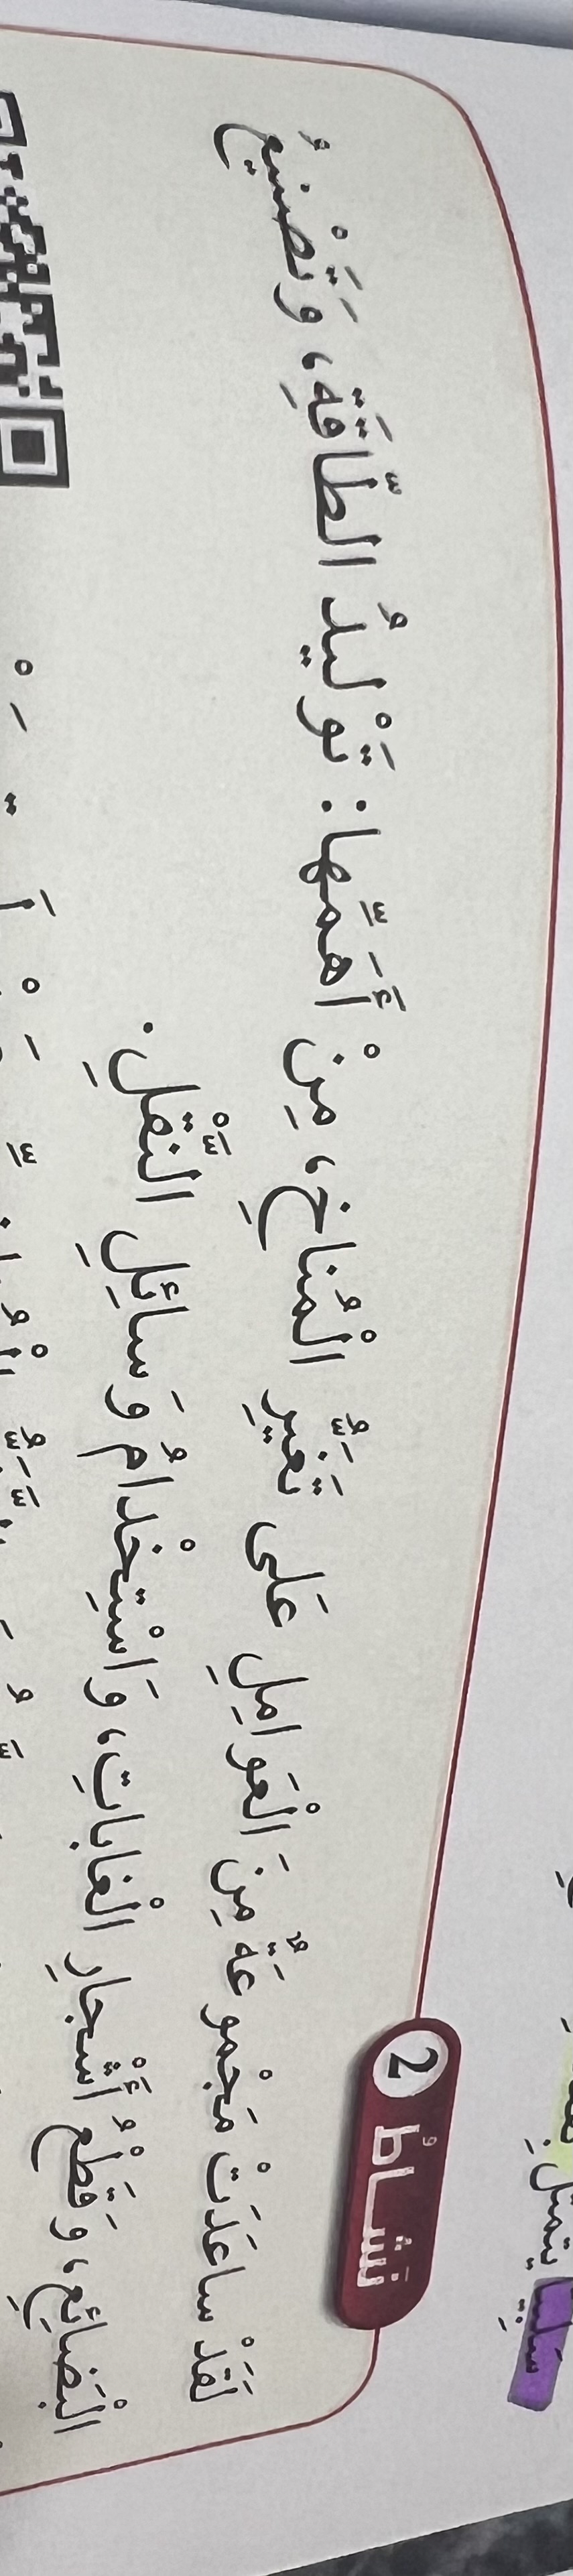 نَشاطٌ 2
لَقَدْ ساعَدَتْ مَجْموعَةٌ مِنَ الْعَوامِلِ عَلى تَغَيُّرِ الْمُناخِ، مِنْ أَهَمِّها: تَوْليدُ الطّاقَةِ، وَتَصْنيعُ
الْبَضائِعِ، وَقَطْعُ أَشْجارِ الْغاباتِ، وَاسْتِخْدامُ وَسائِلِ النَّقْلِ.